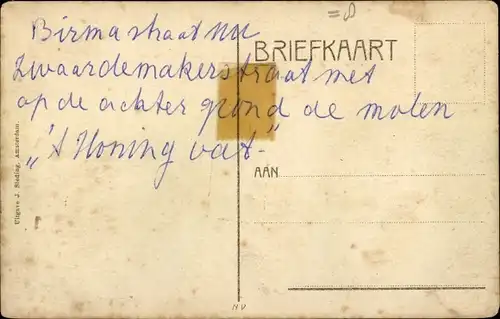 Birmastraat nu
Zwaardemakerstraat met
op de achter grond de molen
„'t Honing vat"
BRIEFKAART
AAN
Uitgave J. Sleding, Amsterdam.
N V